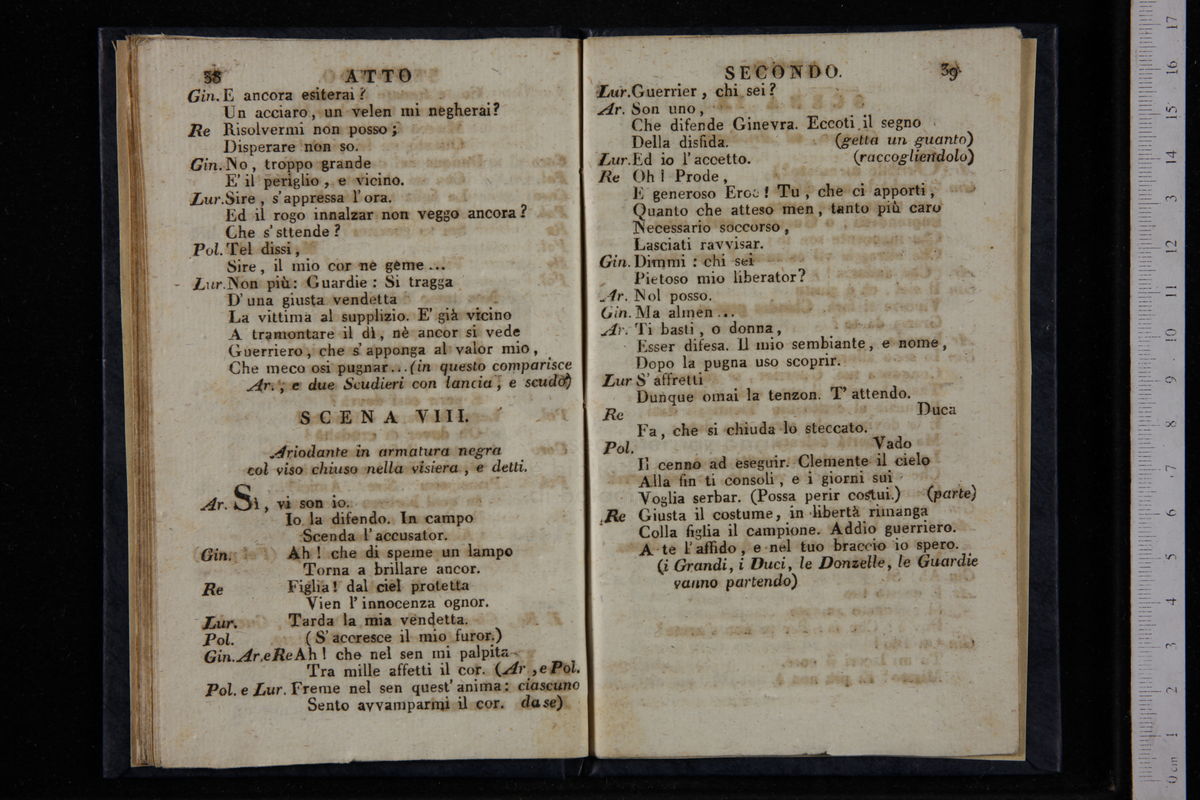 38 ATTO
Gin. E ancora esiterai?
Un acciaro, un velen mi negherai?
Re Risolvermi non posso;
Disperare non so.
Gin. No, troppo grande
E' il periglio, e vicino.
Lur. Sire, s'appressa l'ora.
Ed il rogo innalzar non veggo ancora?
Che s'sttende?
Pol. Tel dissi,
Sire, il mio cor ne geme...
Lur. Non più: Guardie: Si tragga
D'una giusta vendetta
La vittima al supplizio. E' già vicino
A tramontare il dì, nè ancor si vede
Guerriero, che s'apponga al valor mio,
Che meco osi pugnar... (in questo comparisce
Ar., e due Scudieri con lancia, e scudo)
SCENA VIII.
Ariodante in armatura negra
col viso chiuso nella visiera, e detti.
Ar. Sì, vi son io.
Io la difendo. In campo
Scenda l'accusator.
Gin. Ah! che di speme un lampo
Torna a brillare ancor.
Re Figlia! dal ciel protetta
Vien l'innocenza ognor.
Lur. Tarda la mia vendetta.
Pol. (S'accresce il mio furor.)
Gin. Ar. e Re Ah! che nel sen mi palpita
Tra mille affetti il cor. (Ar, e Pol.
Pol. e Lur. Freme nel sen quest'anima: ciascuno
Sento avvamparmi il cor. da se)
SECONDO. 39
Lur. Guerrier, chi sei?
Ar. Son uno,
Che difende Ginevra. Eccoti il segno
Della disfida. (getta un guanto)
Lur. Ed io l'accetto. (raccogliendolo)
Re Oh! Prode,
E generoso Eroe! Tu, che ci apporti,
Quanto che atteso men, tanto più caro
Necessario soccorso,
Lasciati ravvisar.
Gin. Dimmi: chi sei
Pietoso mio liberator?
Ar. Nol posso.
Gin. Ma almen...
Ar. Ti basti, o donna,
Esser difesa. Il mio sembiante, e nome,
Dopo la pugna uso scoprir.
Lur S'affretti
Dunque omai la tenzon. T'attendo.
Re Duca
Fa, che si chiuda lo steccato.
Pol. Vado
Il cenno ad eseguir. Clemente il cielo
Alla fin ti consoli, e i giorni sui
Voglia serbar. (Possa perir costui.) (parte)
Re Giusta il costume, in libertà rimanga
Colla figlia il campione. Addio guerriero.
A te l'affido, e nel tuo braccio io spero.
(i Grandi, i Duci, le Donzelle, le Guardie
vanno partendo)
17
16
15
14
13
12
11
10
9
8
7
6
5
4
3
2
1
0 cm